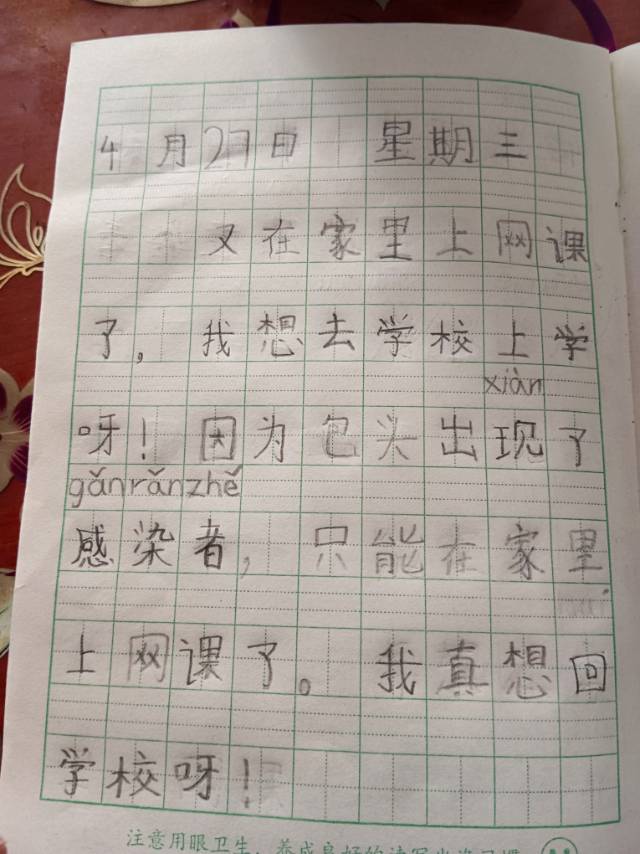 4月27日 星期三
又在家里上网课
了，我想去学校上学
xiàn
呀！因为包头出现了
gǎn rǎn zhě
感染者，只能在家里
上网课了。我真想回
学校呀！
注意用眼卫生，养成良好的读写坐姿习惯